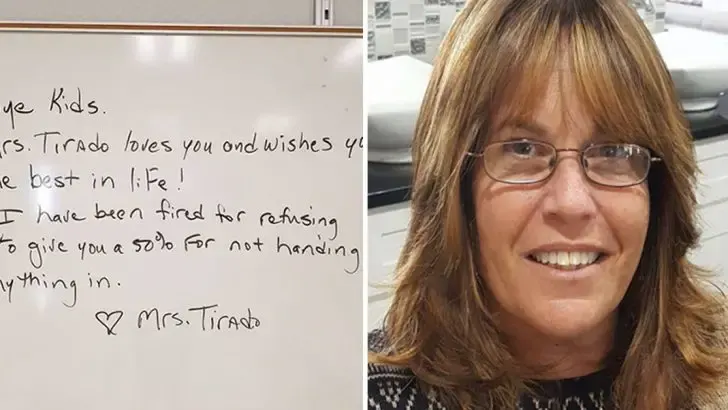 ye Kids.
rs. Tirado loves you and wishes y
e best in life!
I have been fired for refusing
to give you a 50% for not handing
nything in.
♡ Mrs. Tirado